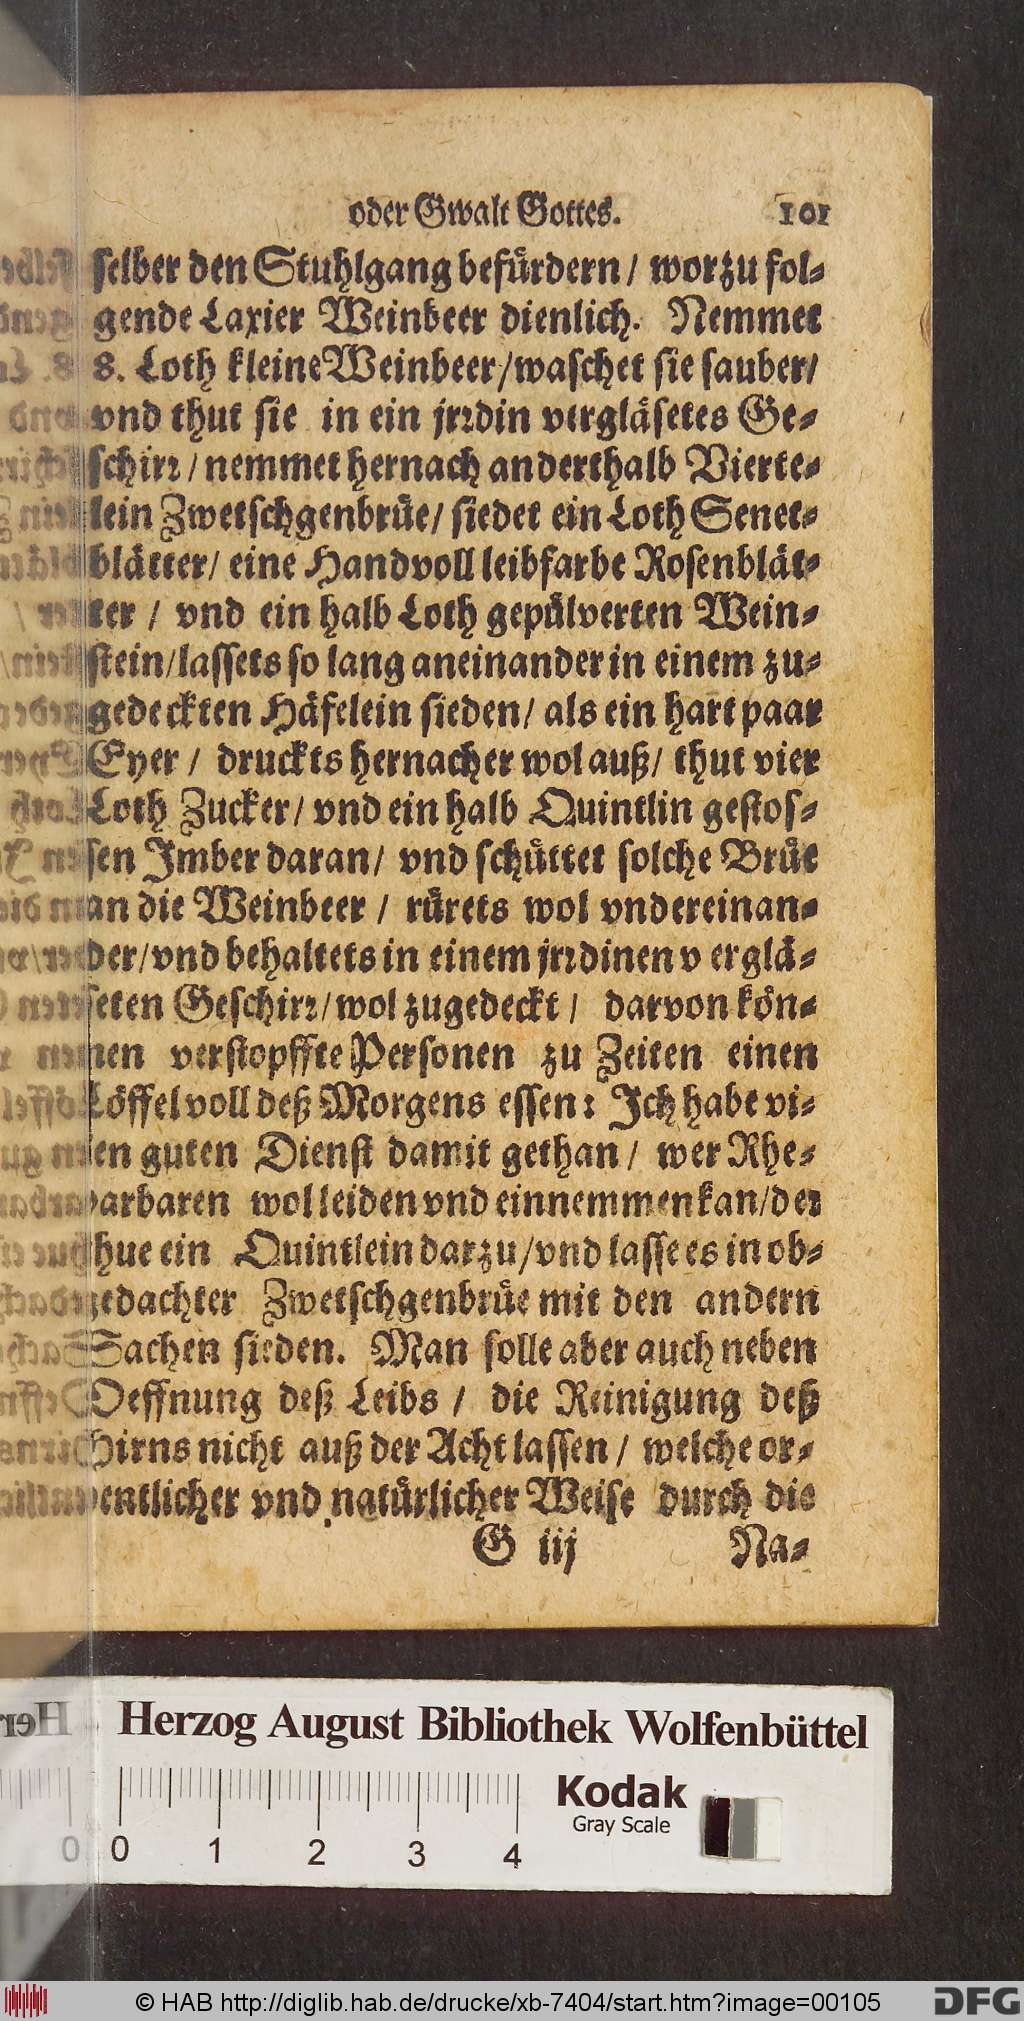 oder Gwalt Gottes. 101
selber den Stuhlgang befürdern / worzu fol-
gende Laxier Weinbeer dienlich. Nemmet
8. Loth kleine Weinbeer / waschet sie sauber /
vnd thut sie in ein jrrdin vergläsetes Ge-
schirr / nemmet hernach anderthalb Vierte-
lein Zwetschgenbrüe / siedet ein Loth Senet-
blätter / eine Handvoll leibfarbe Rosenblät-
ter / vnd ein halb Loth gepülverten Wein-
stein / lassets so lang aneinander in einem zu-
gedeckten Häfelein sieden / als ein hart paar
Eyer / druckts hernacher wol auß / thut vier
Loth Zucker / vnd ein halb Quintlin gestos-
sen Imber daran / vnd schüttet solche Brüe
an die Weinbeer / rürets wol vndereinan-
der / vnd behaltets in einem jrrdinen v erglä-
seten Geschirr / wol zugedeckt / darvon kön-
nen verstopffte Personen zu Zeiten einen
Löffel voll deß Morgens essen: Ich habe vi-
len guten Dienst damit gethan / wer Rhe-
barbaren wol leiden vnd einnemmen kan / der
thue ein Quintlein darzu / vnd lasse es in ob-
gedachter Zwetschgenbrüe mit den andern
Sachen sieden. Man solle aber auch neben
Oeffnung deß Leibs / die Reinigung deß
Hirns nicht auß der Acht lassen / welche or-
dentlicher vnd natürlicher Weise durch die
G iij Na-
Herzog August Bibliothek Wolfenbüttel
Kodak
Gray Scale
0 1 2 3 4
© HAB http://diglib.hab.de/drucke/xb-7404/start.htm?image=00105
DFG